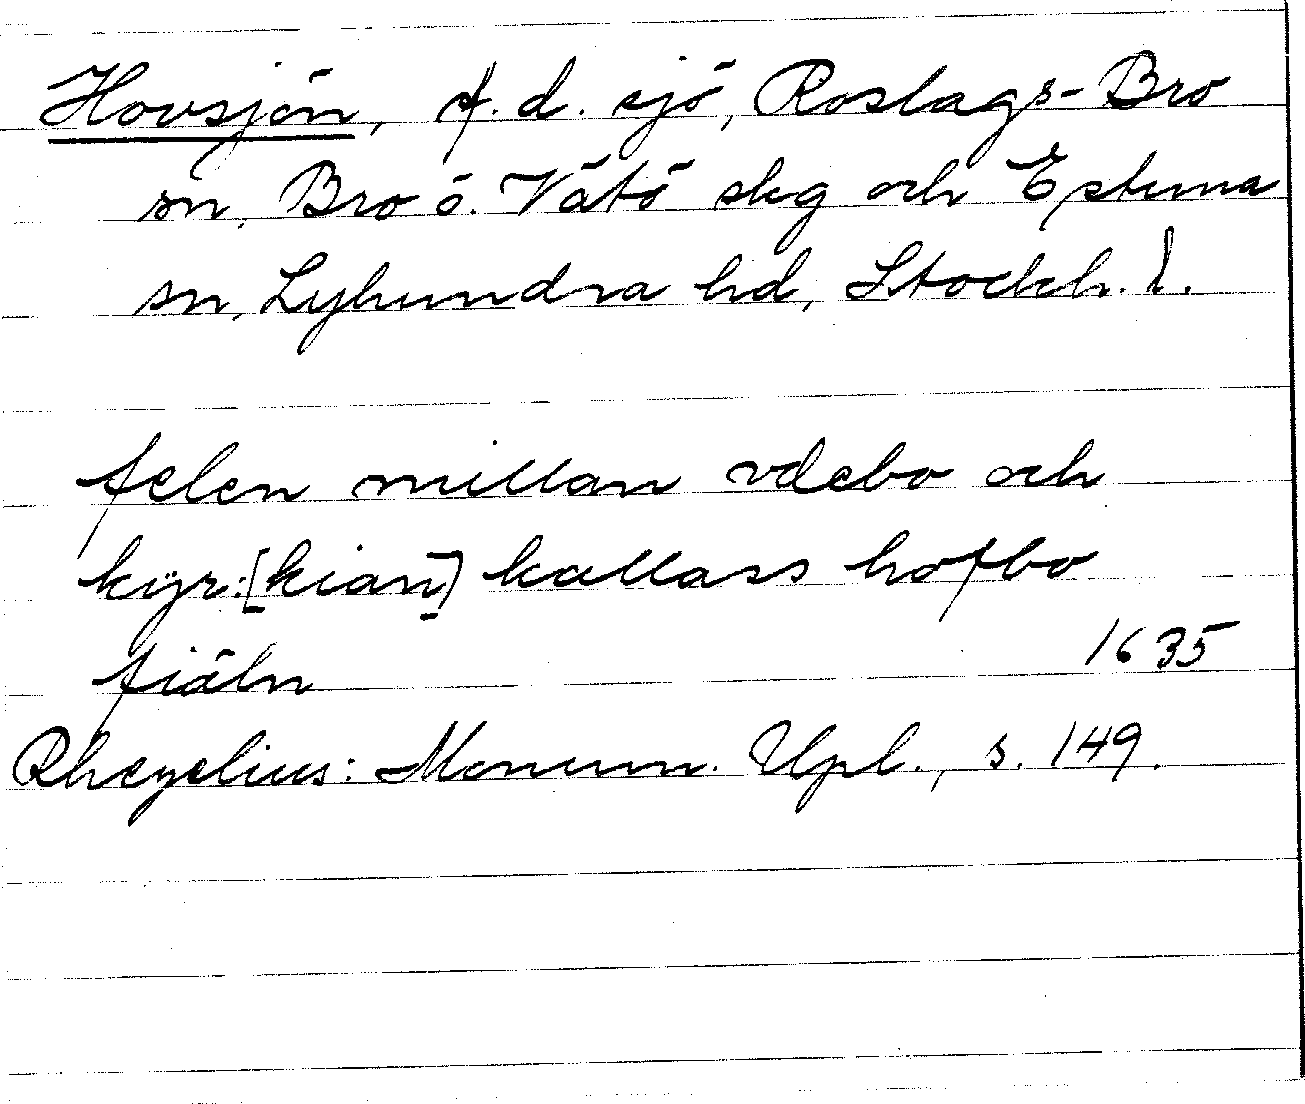 Hovsjön, f.d. sjö, Roslags-Bro
sn, Bro o. Vätö skg och Estuna
sn, Lyhundra hd, Stockh. l.
felen millan vdebo och
kyr:[kian] kallass hofbo
fiäln 1635
Rhezelius: Monum. Upl., s. 149.